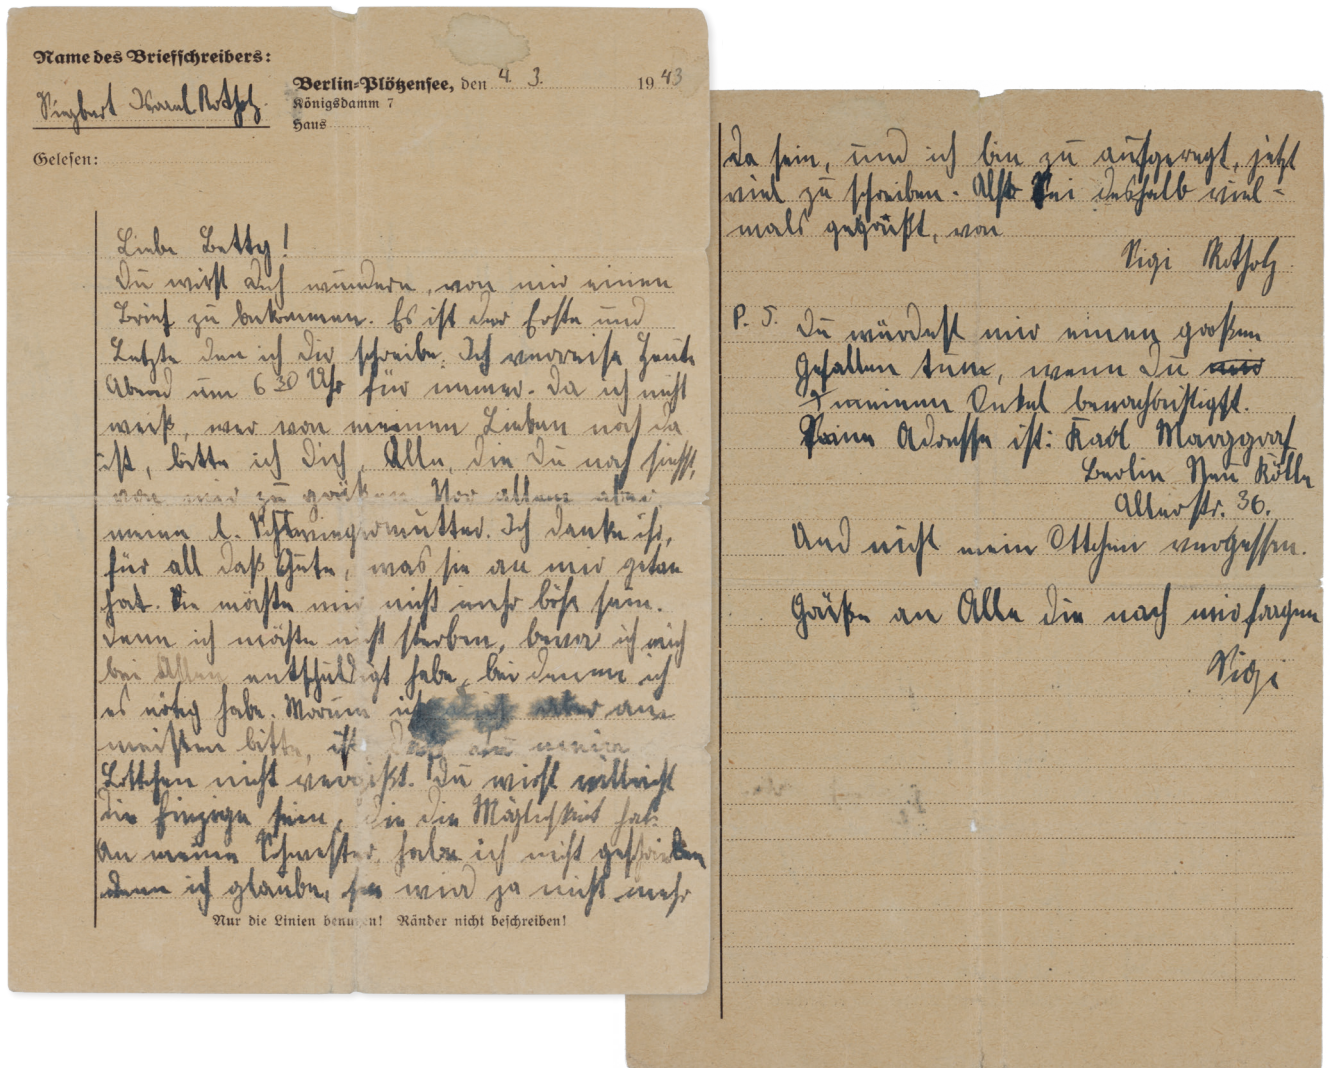 Name des Briefschreibers:
Siegbert Israel Rotholz.
Berlin-Plötzensee, den 4. 3. 1943
Königsdamm 7
Haus
Gelesen:
Liebe Betty!
Du wirst Dich wundern, von mir einen
Brief zu bekommen. Es ist der Erste und
Letzte den ich Dir schreibe. Ich verreise Heute
Abend um 6 30 Uhr für immer. Da ich nicht
weiß, wer von meinen Lieben noch da
ist, bitte ich Dich, Alle, die Du noch siehst,
von mir zu grüßen. Vor allem aber
meine l. Schwiegermutter. Ich danke ihr,
für all daß Gute, was sie an mir getan
hat. Sie möchte mir nicht mehr böse sein.
Denn ich möchte nicht sterben, bevor ich mich
bei Allen entschuldigt habe, bei denen ich
es nötig habe. Worum ich aber am
meisten bitte, ist daß du meine
Lottchen nicht vergißt. Du wirst villeicht
die Einzige sein, die die Möglichkeit hat.
An meine Schwester habe ich nicht geschrieben
denn ich glaube, sie wird ja nicht mehr
Nur die Linien benutzen! Ränder nicht beschreiben!
da sein, und ich bin zu aufgeregt, jetzt
viel zu schreiben. Also sei deshalb viel-
mals gegrüßt, von
Sigi Rotholz
P. S. Du würdest mir einen großen
Gefallen tun, wenn Du mir
meinen Onkel benachrichtigst.
Seine Adresse ist: Karl Marggraf
Berlin Neu Kölln
Allerstr. 36.
Und nicht mein Ottchen vergessen.
Grüße an Alle die nach mir fragen
Sigi